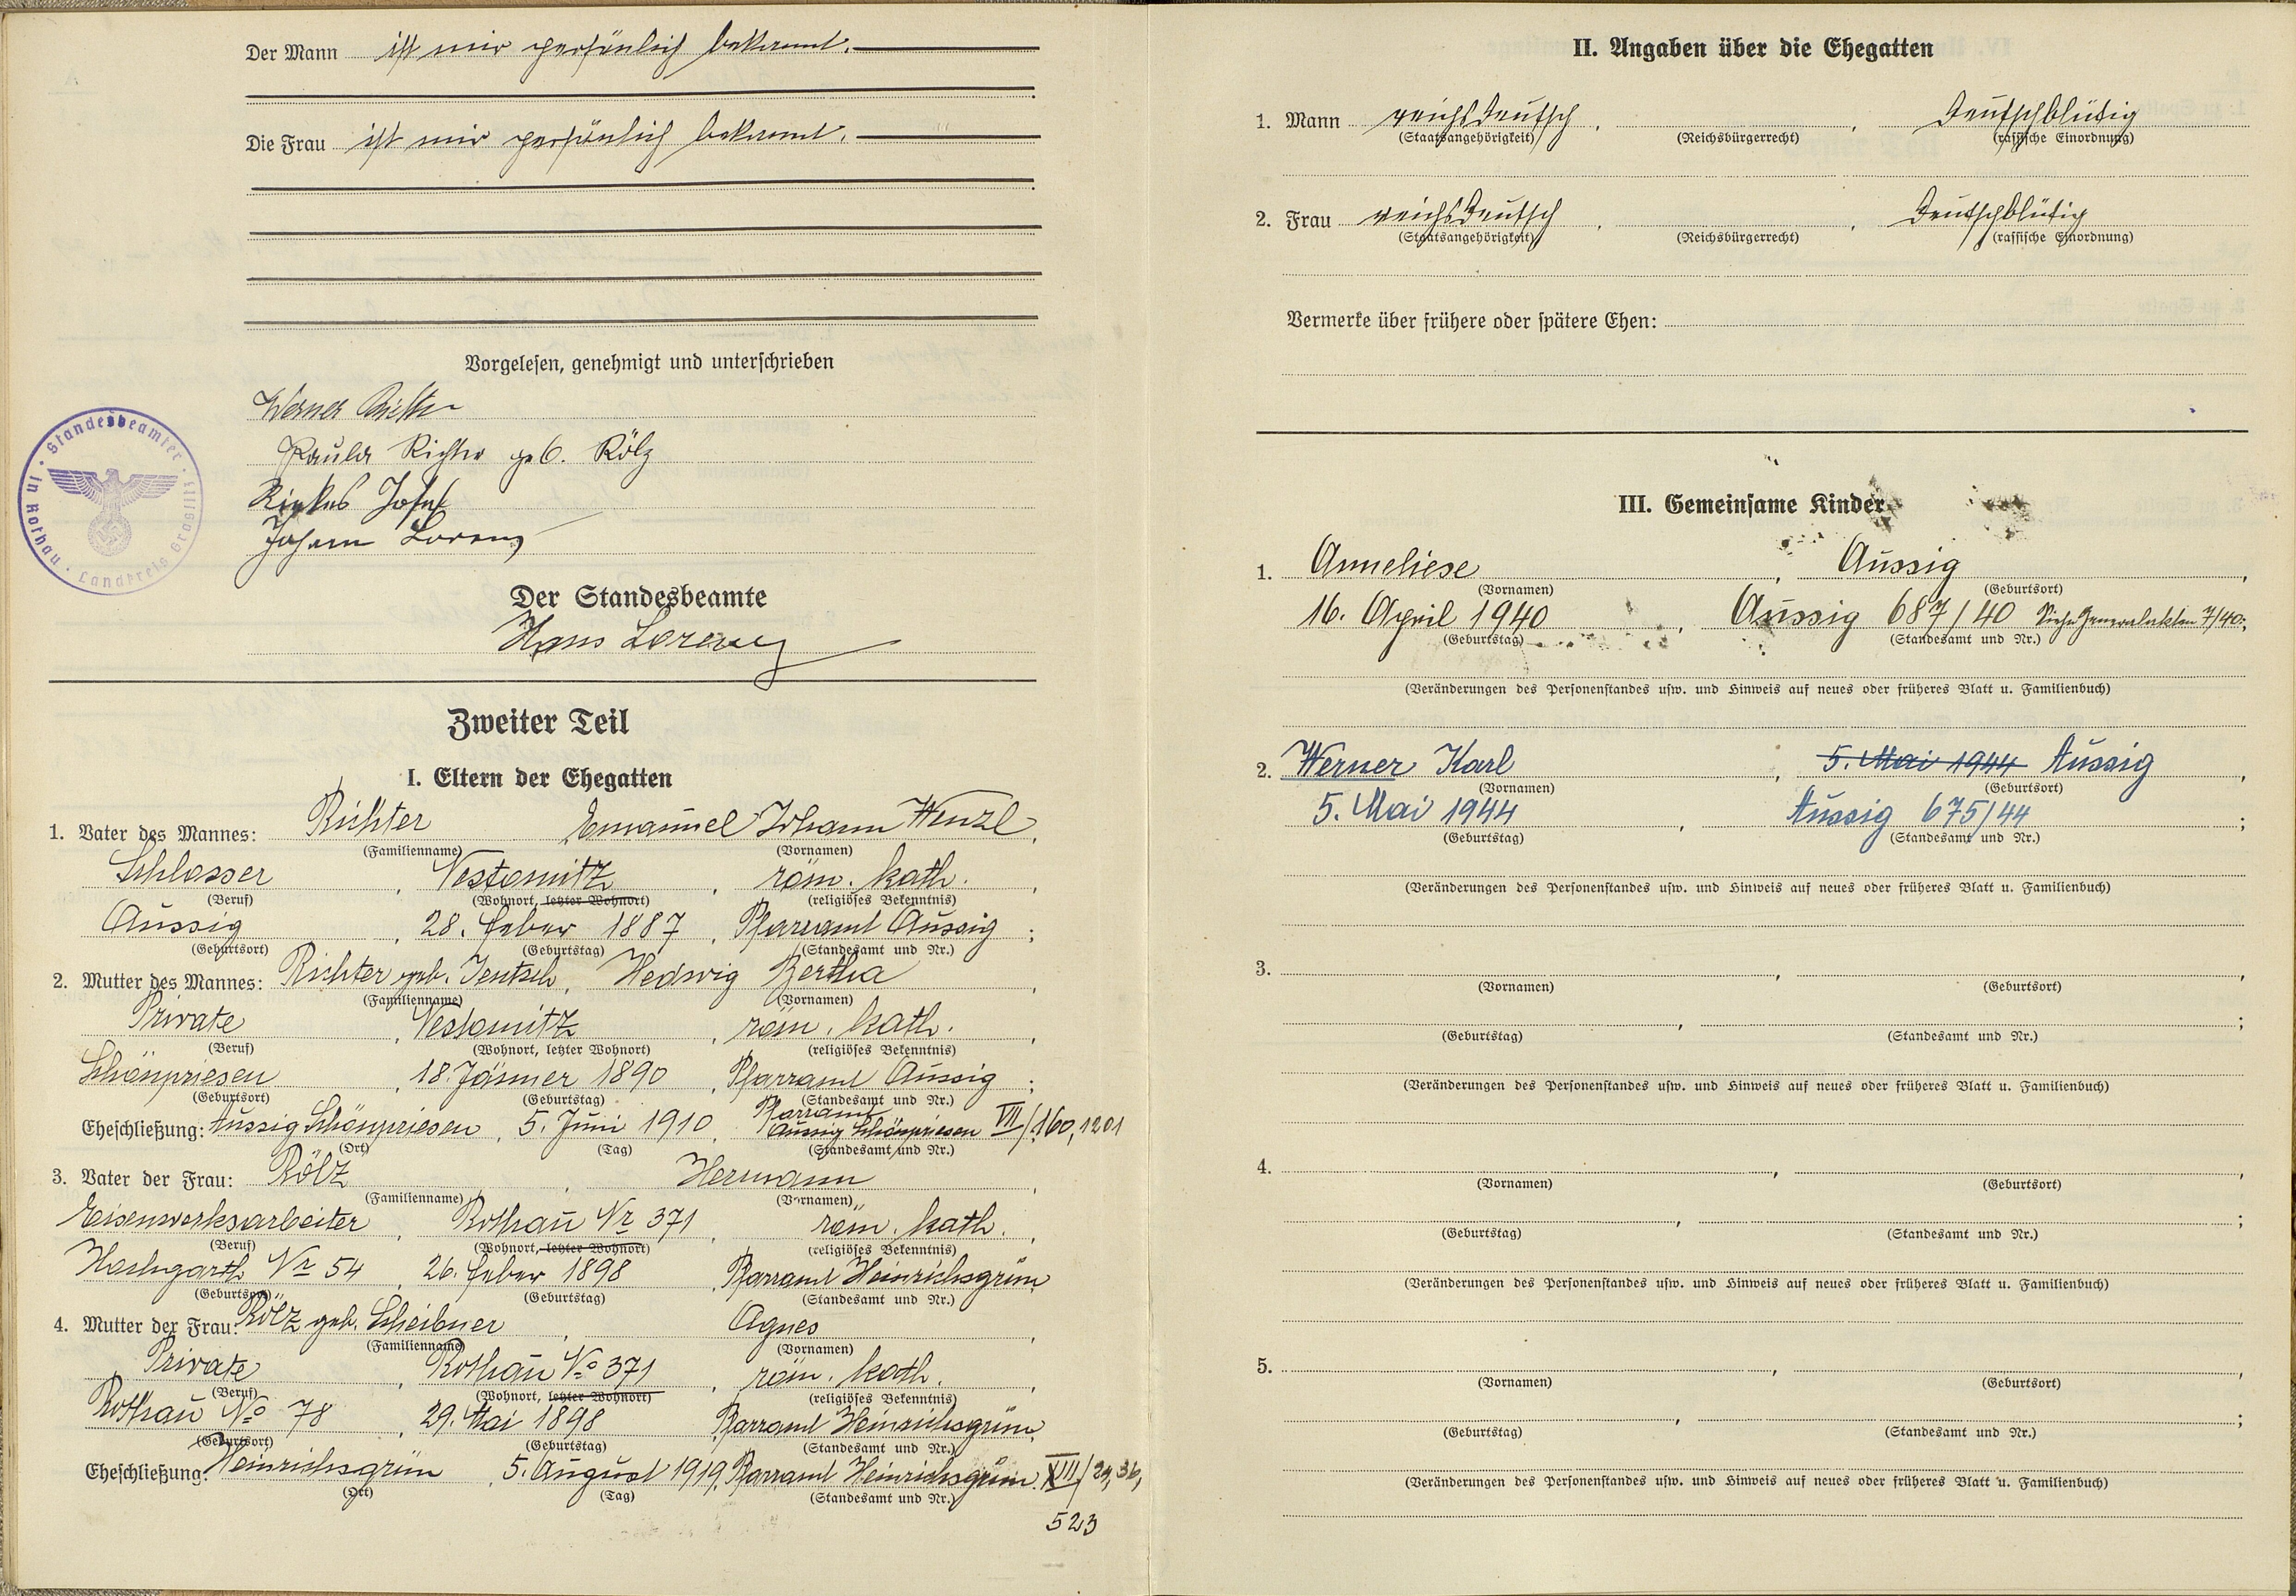 Der Mann ist mir persönlich bekannt.
Die Frau ist mir persönlich bekannt.
Vorgelesen, genehmigt und unterschrieben
Werner Richter
Paula Richter geb. Rölz
Josef
Johann Lorenz
Standesbeamter · in Rothau · Landkreis Graslitz
Der Standesbeamte
Hans Lorenz
Zweiter Teil
I. Eltern der Ehegatten
1. Vater des Mannes: Richter, Emanuel Johann Wenzl,
(Familienname) (Vornamen)
Schlosser, Nestomitz, röm. kath.,
(Beruf) (Wohnort, letzter Wohnort) (religiöses Bekenntnis)
Aussig, 28. Feber 1887, Pfarramt Aussig;
(Geburtsort) (Geburtstag) (Standesamt und Nr.)
2. Mutter des Mannes: Richter geb. Jentsch, Hedwig Bertha,
(Familienname) (Vornamen)
Private, Nestomitz, röm. kath.,
(Beruf) (Wohnort, letzter Wohnort) (religiöses Bekenntnis)
Schönpriesen, 18. Jänner 1890, Pfarramt Aussig;
(Geburtsort) (Geburtstag) (Standesamt und Nr.)
Eheschließung: Aussig Schönpriesen, 5. Juni 1910, Pfarramt Aussig Schönpriesen VII/160,1201
(Ort) (Tag) (Standesamt und Nr.)
3. Vater der Frau: Rölz, Hermann,
(Familienname) (Vornamen)
Eisenwerksarbeiter, Rothau Nr 371, röm. kath.,
(Beruf) (Wohnort, letzter Wohnort) (religiöses Bekenntnis)
Nr 54, 26. Feber 1898, Pfarramt Heinrichsgrün;
(Geburtsort) (Geburtstag) (Standesamt und Nr.)
4. Mutter der Frau: Rölz geb. Scheibner, Agnes,
(Familienname) (Vornamen)
Private, Rothau No 371, röm. kath.,
(Beruf) (Wohnort, letzter Wohnort) (religiöses Bekenntnis)
Rothau No 78, 29. Mai 1898, Pfarramt Heinrichsgrün;
(Geburtsort) (Geburtstag) (Standesamt und Nr.)
Eheschließung: Heinrichsgrün, 5. August 1919, Pfarramt Heinrichsgrün
(Ort) (Tag) (Standesamt und Nr.)
523
II. Angaben über die Ehegatten
1. Mann reichsdeutsch, , deutschblütig
(Staatsangehörigkeit) (Reichsbürgerrecht) (rassische Einordnung)
2. Frau reichsdeutsch, , deutschblütig
(Staatsangehörigkeit) (Reichsbürgerrecht) (rassische Einordnung)
Vermerke über frühere oder spätere Ehen:
III. Gemeinsame Kinder
1. Anneliese, Aussig,
(Vornamen) (Geburtsort)
16. April 1940, Aussig 687/40 Siehe Generalakten 7/40;
(Geburtstag) (Standesamt und Nr.)
(Veränderungen des Personenstandes usw. und Hinweis auf neues oder früheres Blatt u. Familienbuch)
2. Werner Karl, 5. Mai 1944 Aussig,
(Vornamen) (Geburtsort)
5. Mai 1944, Aussig 675/44;
(Geburtstag) (Standesamt und Nr.)
(Veränderungen des Personenstandes usw. und Hinweis auf neues oder früheres Blatt u. Familienbuch)
3. , ,
(Vornamen) (Geburtsort)
, ;
(Geburtstag) (Standesamt und Nr.)
(Veränderungen des Personenstandes usw. und Hinweis auf neues oder früheres Blatt u. Familienbuch)
4. , ,
(Vornamen) (Geburtsort)
, ;
(Geburtstag) (Standesamt und Nr.)
(Veränderungen des Personenstandes usw. und Hinweis auf neues oder früheres Blatt u. Familienbuch)
5. , ,
(Vornamen) (Geburtsort)
, ;
(Geburtstag) (Standesamt und Nr.)
(Veränderungen des Personenstandes usw. und Hinweis auf neues oder früheres Blatt u. Familienbuch)